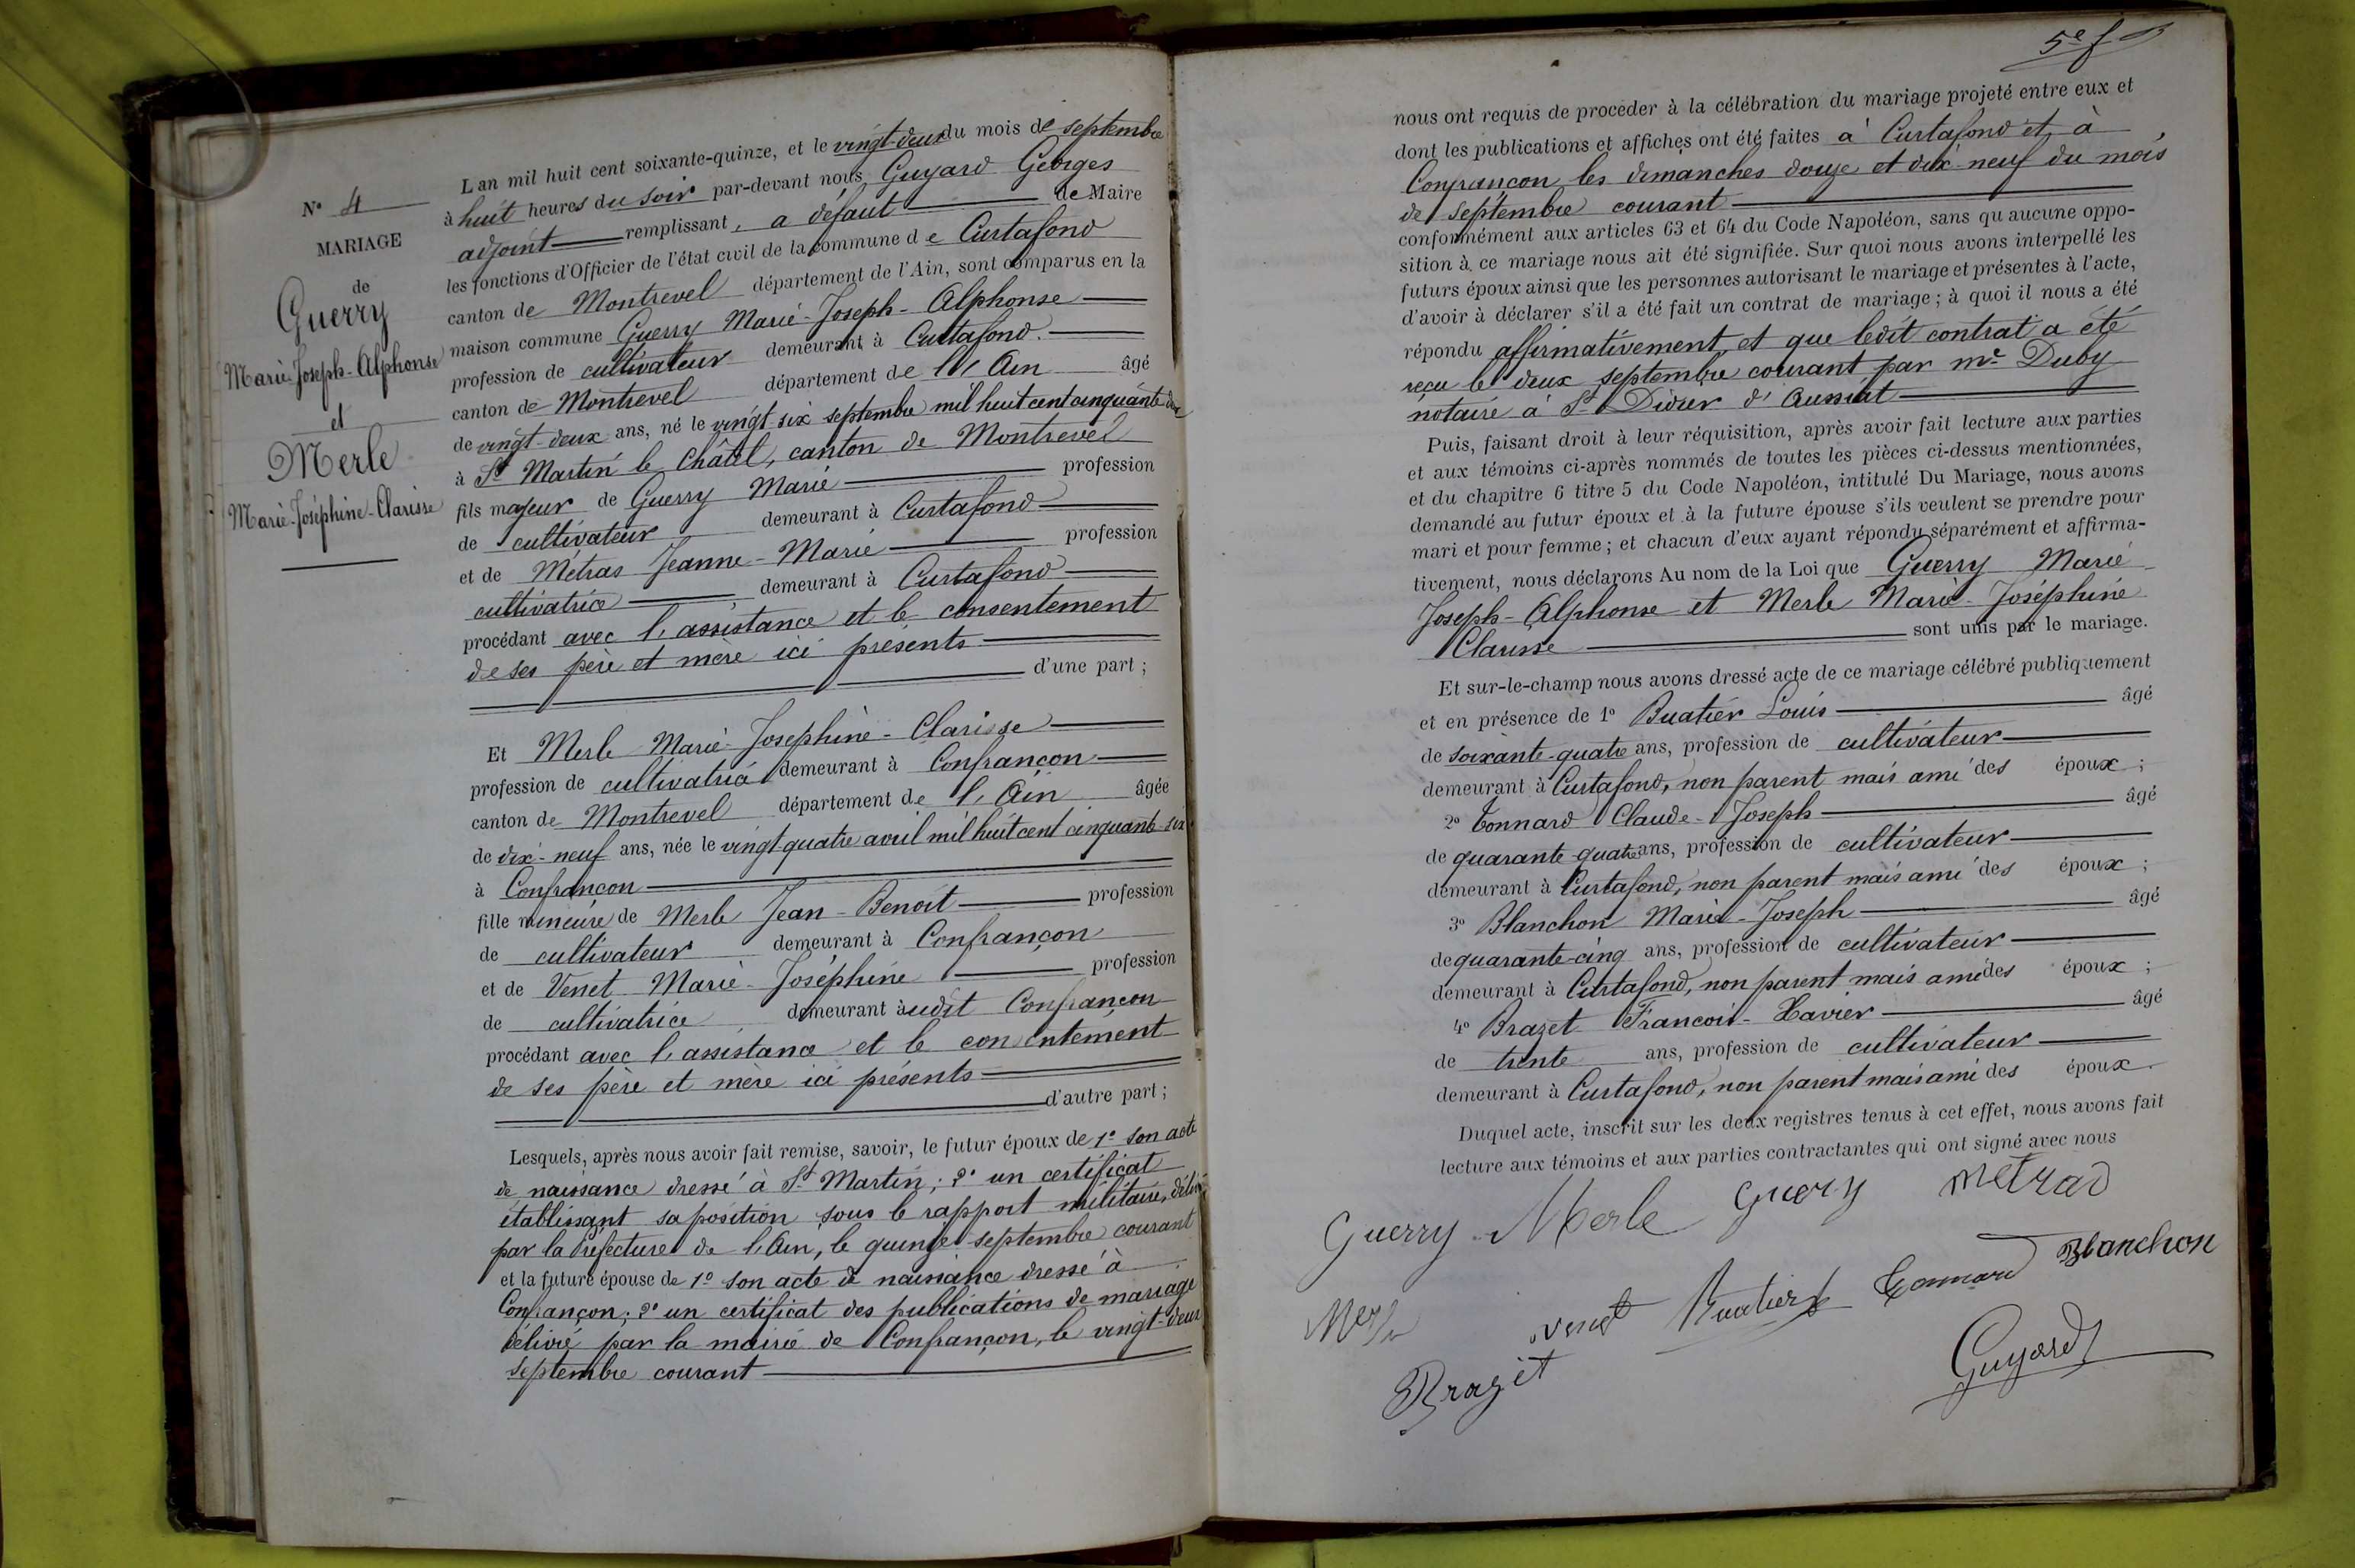 N° 4
MARIAGE
de
Guerry
Marie-Joseph-Alphonse
et
Merle
Marie-Joséphine-Clarisse
L an mil huit cent soixante-quinze, et le vingt-deux du mois de septembre
à huit heures du soir par-devant nous Guyard Georges
adjoint remplissant, a défaut de Maire
les fonctions d'Officier de l'état civil de la commune de Curtafond
canton de Montrevel département de l'Ain, sont comparus en la
maison commune Guerry Marie-Joseph-Alphonse
profession de cultivateur demeurant à Curtafond.
canton de Montrevel département de l'Ain âgé
de vingt-deux ans, né le vingt-six septembre mil huit cent cinquante-deux
à St Martin le Châtel, canton de Montrevel
fils majeur de Guerry Marie profession
de cultivateur demeurant à Curtafond
et de Métras Jeanne-Marie profession
cultivatrice demeurant à Curtafond
procédant avec l'assistance et le consentement
de ses père et mère ici présents
d'une part ;
Et Merle Marie-Josephine-Clarisse
profession de cultivatrice demeurant à Confrançon
canton de Montrevel département de l'Ain âgée
de dix-neuf ans, née le vingt-quatre avril mil huit cent cinquante-six
à Confrançon
fille mineure de Merle Jean-Benoît profession
de cultivateur demeurant à Confrançon
et de Venet Marie-Joséphine profession
de cultivatrice demeurant àudit Confrançon
procédant avec l'assistance et le consentement
de ses père et mère ici présents
d'autre part ;
Lesquels, après nous avoir fait remise, savoir, le futur époux de 1° son acte
de naissance dressé à St Martin ; 2° un certificat
établissant sa position sous le rapport militaire, délivré
par la Préfecture de l'Ain, le quinze septembre courant
et la future épouse de 1° son acte de naissance dressé à
Confrançon ; 2° un certificat des publications de mariage
délivré par la mairie de Confrançon, le vingt-deux
septembre courant
5e f
nous ont requis de procéder à la célébration du mariage projeté entre eux et
dont les publications et affiches ont été faites à Curtafond et à
Confrançon les dimanches douze et dix-neuf du mois
de septembre courant
conformément aux articles 63 et 64 du Code Napoléon, sans qu aucune oppo-
sition à ce mariage nous ait été signifiée. Sur quoi nous avons interpellé les
futurs époux ainsi que les personnes autorisant le mariage et présentes à l'acte,
d'avoir à déclarer s'il a été fait un contrat de mariage ; à quoi il nous a été
répondu affirmativement, et que ledit contrat a été
reçu le deux septembre courant par me Duby
notaire à St Didier d'Aussiat
Puis, faisant droit à leur réquisition, après avoir fait lecture aux parties
et aux témoins ci-après nommés de toutes les pièces ci-dessus mentionnées,
et du chapitre 6 titre 5 du Code Napoléon, intitulé Du Mariage, nous avons
demandé au futur époux et à la future épouse s'ils veulent se prendre pour
mari et pour femme ; et chacun d'eux ayant répondu séparément et affirma-
tivement, nous déclarons Au nom de la Loi que Guerry Marie
Joseph-Alphonse et Merle Marie-Joséphine
Clarisse sont unis par le mariage.
Et sur-le-champ nous avons dressé acte de ce mariage célébré publiquement
et en présence de 1° Buatier Louis âgé
de soixante-quatre ans, profession de cultivateur
demeurant à Curtafond, non parent mais ami des époux ;
2° Connard Claude-Joseph âgé
de quarante-quatre ans, profession de cultivateur
demeurant à Curtafond, non parent mais ami des époux ;
3° Blanchon Marie-Joseph âgé
de quarante-cinq ans, profession de cultivateur
demeurant à Curtafond, non parent mais ami des époux ;
4° Brazet François-Xavier âgé
de trente ans, profession de cultivateur
demeurant à Curtafond, non parent mais ami des époux.
Duquel acte, inscrit sur les deux registres tenus à cet effet, nous avons fait
lecture aux témoins et aux parties contractantes qui ont signé avec nous
Guerry Merle Guery Metras
Merle Venet Buatier Connard Blanchon
Brazet Guyard